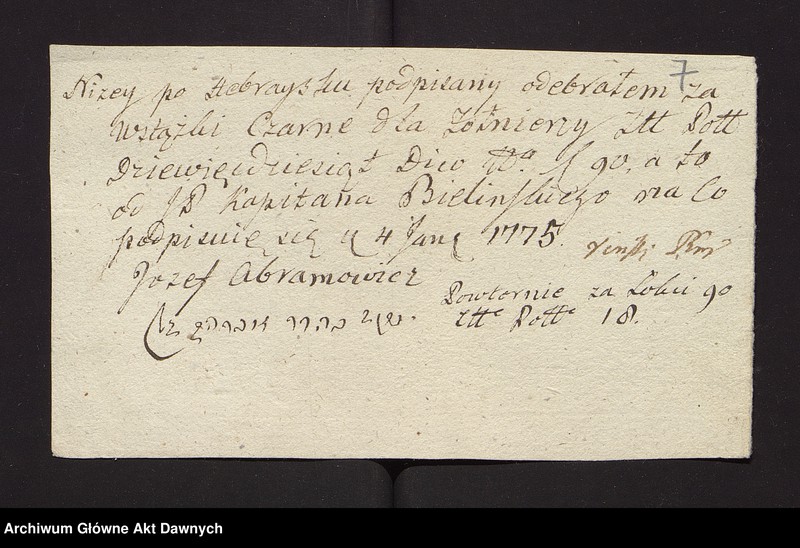 7
Nizey po Hebraysku podpisany odebrałem za
Wstążki Czarne dla Żołnierzy Ztt Poll
Dziewięćdziesiąt Dico 90, a to
od JP Kapitana Bielinskiego na Co
podpisuię się d 4 Jan 1775.
Jozef Abramowicz
Powtornie za Łokci 90
Ztt Poll 18.
Archiwum Główne Akt Dawnych